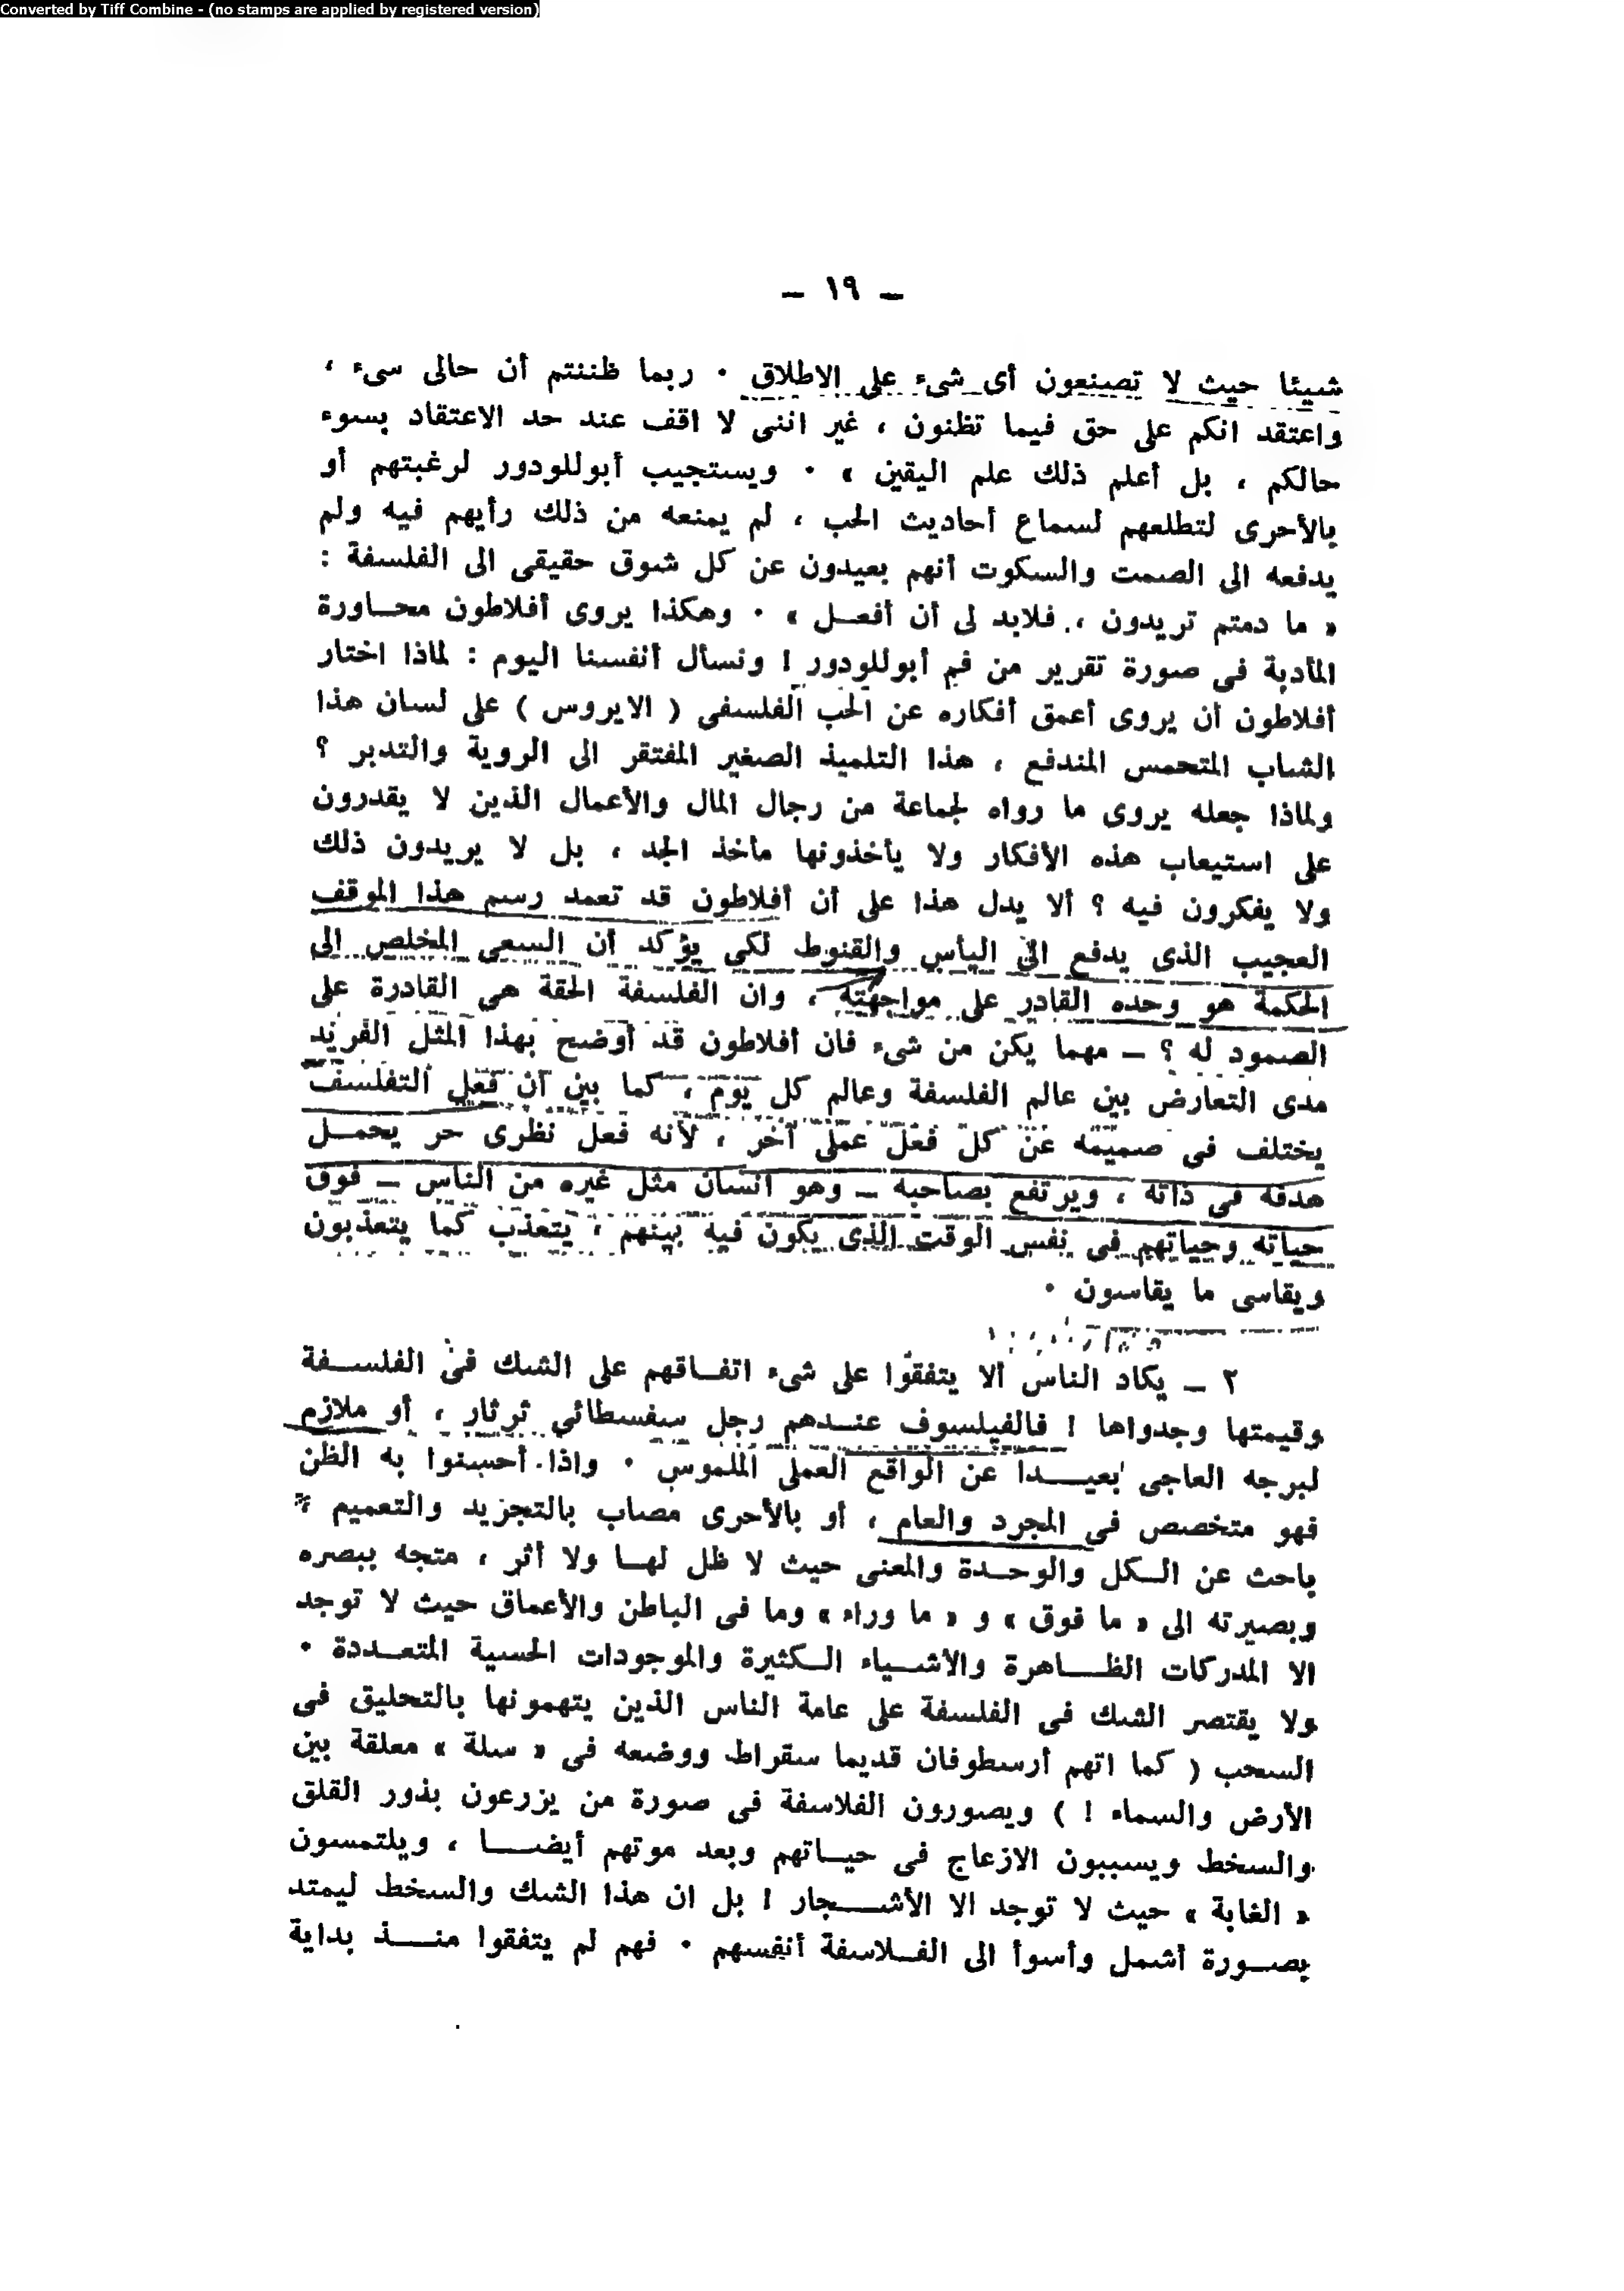 Converted by Tiff Combine - (no stamps are applied by registered version)
— ١٩ —
شيئا حيث لا تصنعون أى شىء على الاطلاق . ربما ظننتم أن حالى سىء ،
واعتقد انكم على حق فيما تظنون ، غير اننى لا اقف عند حد الاعتقاد بسوء
حالكم ، بل أعلم ذلك علم اليقين » . ويستجيب أبوللودور لرغبتهم أو
بالأحرى لتطلعهم لسماع أحاديث الحب ، لم يمنعه من ذلك رأيهم فيه ولم
يدفعه الى الصمت والسكوت أنهم بعيدون عن كل شوق حقيقى الى الفلسفة :
« ما دمتم تريدون ، فلابد لى أن أفعل » . وهكذا يروى أفلاطون محاورة
المأدبة فى صورة تقرير من فم أبوللودور ! ونسأل أنفسنا اليوم : لماذا اختار
أفلاطون أن يروى أعمق أفكاره عن الحب الفلسفى ( الايروس ) على لسان هذا
الشاب المتحمس المندفع ، هذا التلميذ الصغير المفتقر الى الروية والتدبر ؟
ولماذا جعله يروى ما رواه لجماعة من رجال المال والأعمال الذين لا يقدرون
على استيعاب هذه الأفكار ولا يأخذونها مأخذ الجد ، بل لا يريدون ذلك
ولا يفكرون فيه ؟ ألا يدل هذا على أن أفلاطون قد تعمد رسم هذا الموقف
العجيب الذى يدفع الى اليأس والقنوط لكى يؤكد أن السعى المخلص الى
الحكمة هو وحده القادر على مواجهته ، وان الفلسفة الحقة هى القادرة على
الصمود له ؟ — مهما يكن من شىء فان أفلاطون قد أوضح بهذا المثل الفريد
مدى التعارض بين عالم الفلسفة وعالم كل يوم ، كما بين أن فعل التفلسف
يختلف فى صميمه عن كل فعل عملى آخر ، لأنه فعل نظرى حر يحمل
هدفه فى ذاته ، ويرتفع بصاحبه — وهو انسان مثل غيره من الناس — فوق
حياته وحياتهم فى نفس الوقت الذى يكون فيه بينهم ، يتعذب كما يتعذبون
ويقاسى ما يقاسون .
٢ — يكاد الناس ألا يتفقوا على شىء اتفاقهم على الشك فى الفلسفة
وقيمتها وجدواها ! فالفيلسوف عندهم رجل سفسطائى ثرثار ، أو ملازم
لبرجه العاجى بعيدا عن الواقع العملى الملموس . واذا أحسنوا به الظن
فهو متخصص فى المجرد والعام ، أو بالأحرى مصاب بالتجريد والتعميم ،
باحث عن الكل والوحدة والمعنى حيث لا ظل لها ولا أثر ، متجه ببصره
وبصيرته الى « ما فوق » و « ما وراء » وما فى الباطن والأعماق حيث لا توجد
الا المدركات الظاهرة والأشياء الكثيرة والموجودات الحسية المتعددة .
ولا يقتصر الشك فى الفلسفة على عامة الناس الذين يتهمونها بالتحليق فى
السحب ( كما اتهم أرسطوفان قديما سقراط ووضعه فى « سلة » معلقة بين
الأرض والسماء ! ) ويصورون الفلاسفة فى صورة من يزرعون بذور القلق
والسخط ويسببون الازعاج فى حياتهم وبعد موتهم أيضا ، ويلتمسون
« الغابة » حيث لا توجد الا الأشجار ! بل ان هذا الشك والسخط ليمتد
بصورة أشمل وأسوأ الى الفلاسفة أنفسهم . فهم لم يتفقوا منذ بداية